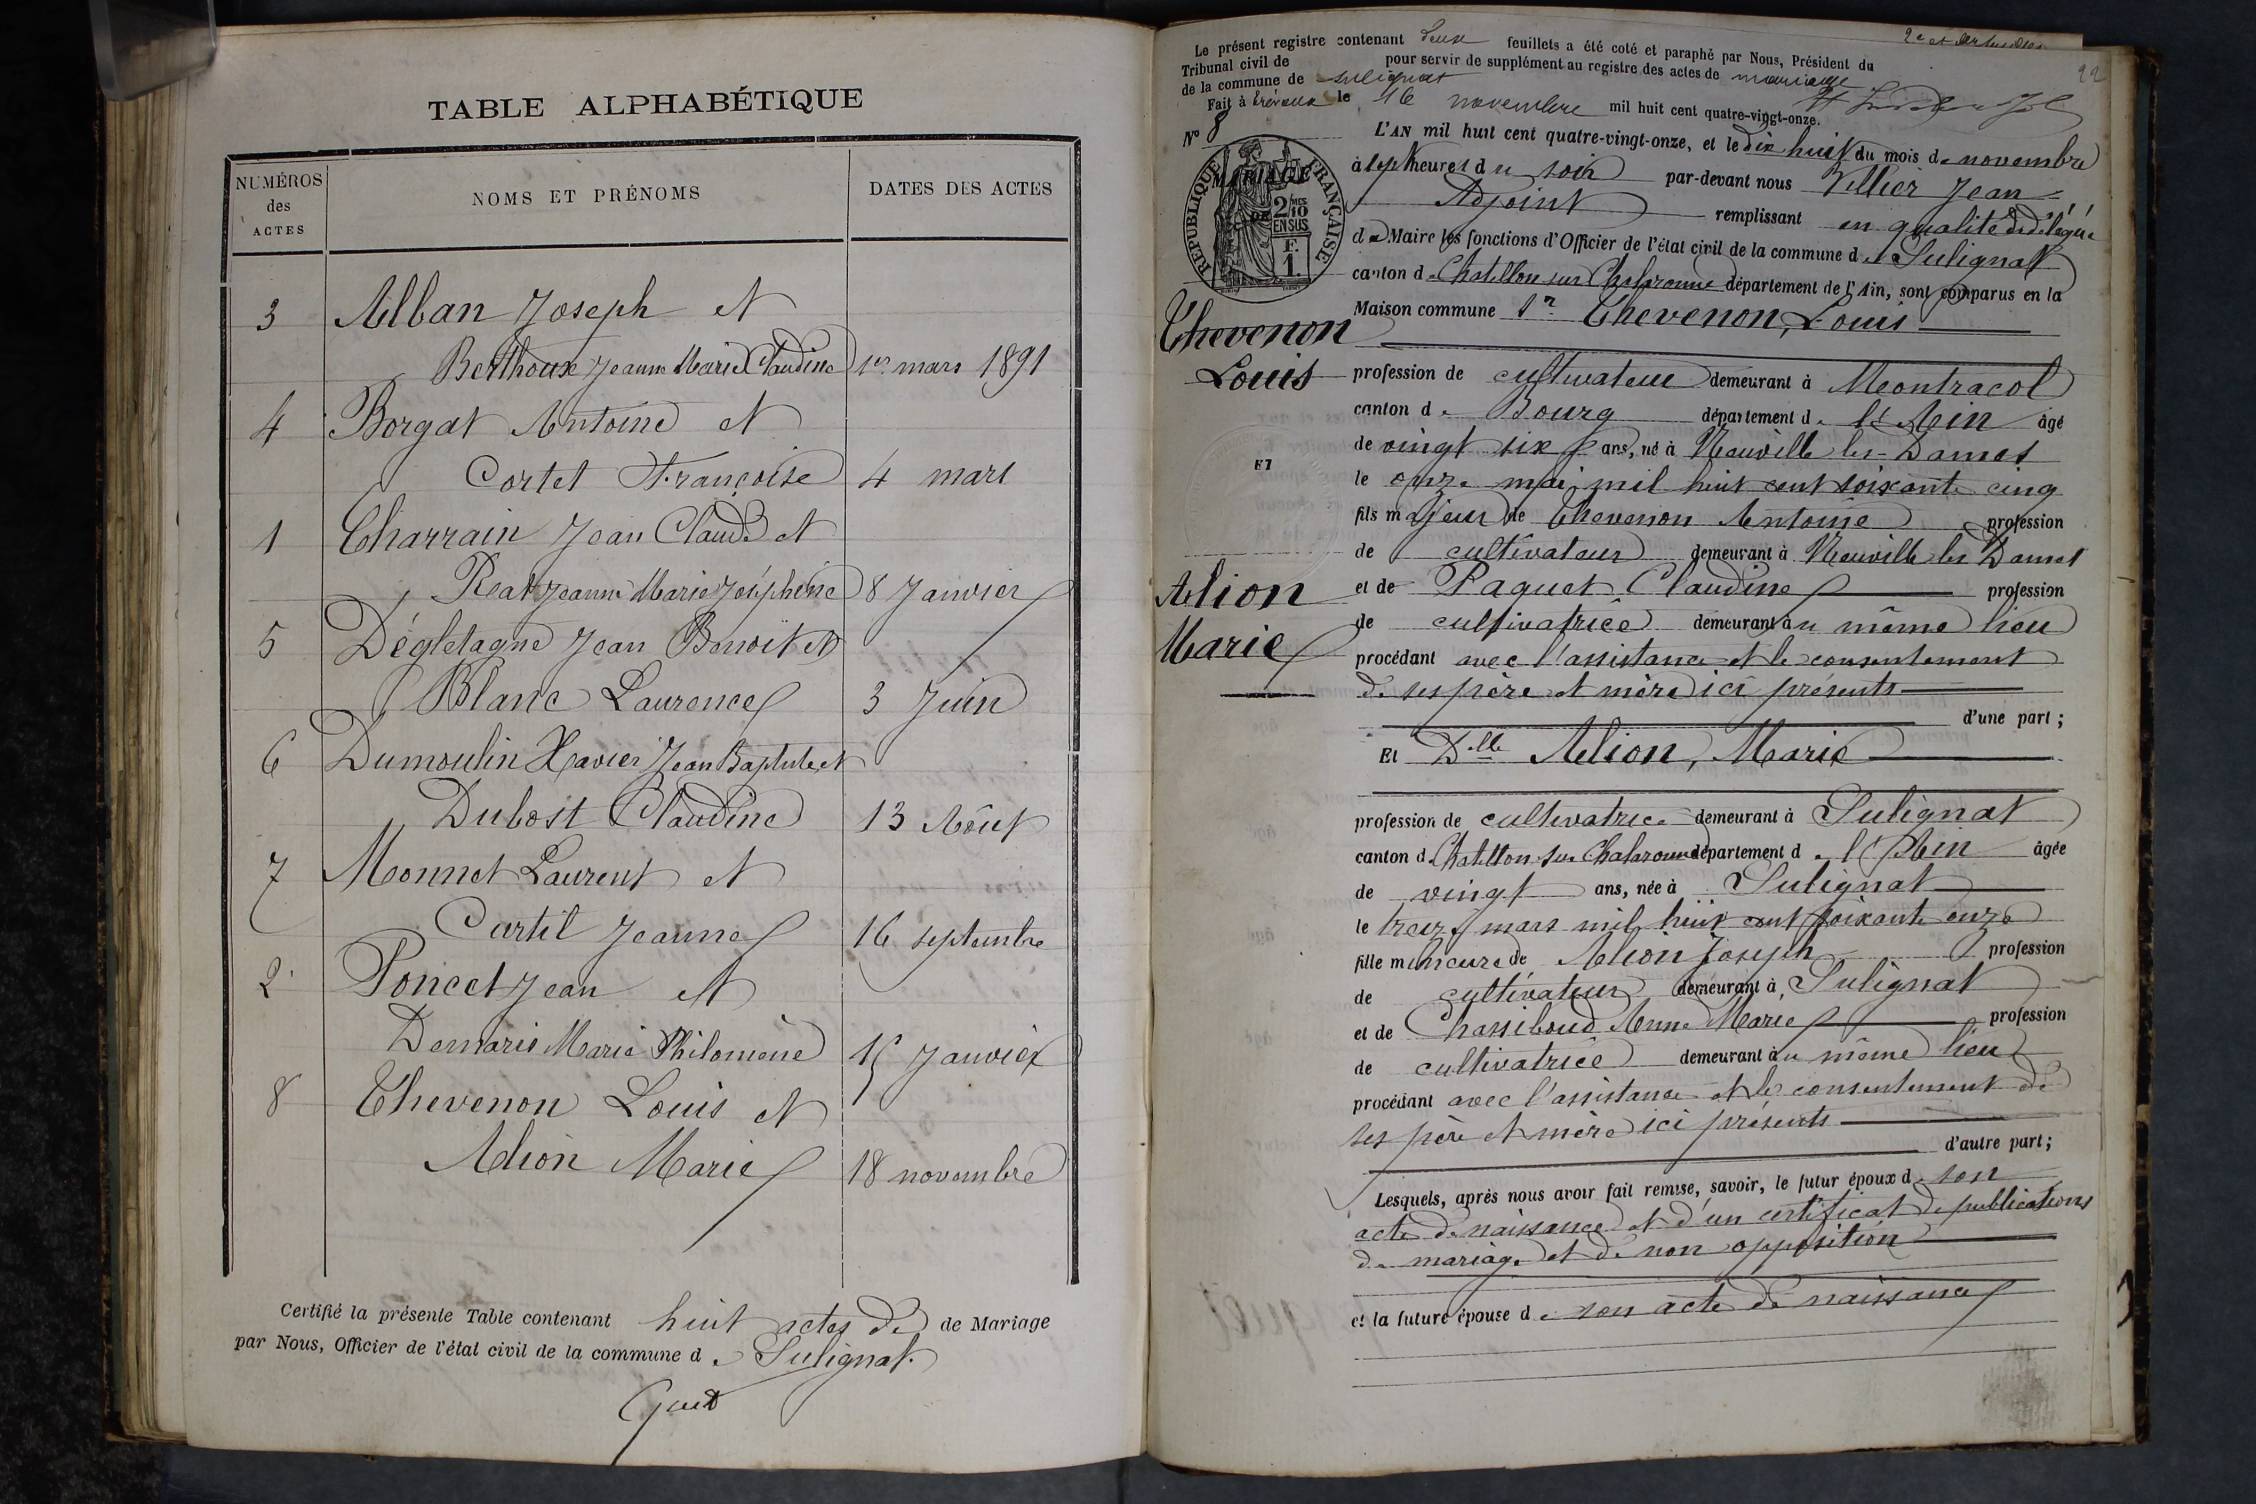 TABLE ALPHABÉTIQUE
NUMÉROS des ACTES
NOMS ET PRÉNOMS
DATES DES ACTES
3 Alban Joseph et
Berthoux Jeanne Marie Claudine 1er mars 1891
4 Borgat Antoine et
Cortet Françoise 4 mars
1 Charrain Jean Claude et
Reat Jeanne Marie Joséphine 8 Janvier
5 Dégletagne Jean Benoît et
Blanc Laurence 3 Juin
6 Dumoulin Xavier Jean Baptiste et
Dubost Claudine 13 Août
7 Monnet Laurent et
Curtil Jeanne 16 septembre
2 Poncet Jean et
Demaris Marie Philomène 15 Janvier
8 Thevenon Louis et
Alion Marie 18 novembre
Certifié la présente Table contenant huit actes de de Mariage
par Nous, Officier de l'état civil de la commune de Sulignat.
2e et dernier feuillet
22
Le présent registre contenant deux feuillets a été coté et paraphé par Nous, Président du
Tribunal civil de pour servir de supplément au registre des actes de mariage
de la commune de Sulignat
Fait à Trévoux le 16 novembre mil huit cent quatre-vingt-onze.
No 8
L'AN mil huit cent quatre-vingt-onze, et le dix huit du mois de novembre
à sept heures du soir par-devant nous Vellier Jean
Adjoint remplissant en qualité de délégué
de Maire les fonctions d'Officier de l'état civil de la commune de Sulignat
canton de Chatillon sur Chalaronne département de l'Ain, sont comparus en la
Maison commune 1° Thevenon, Louis
MARIAGE
DE
RÉPUBLIQUE FRANÇAISE
2/10 MES
EN SUS
F.
1.
Thevenon
Louis
ET
Alion
Marie
profession de cultivateur demeurant à Montracol
canton de Bourg département de l'Ain âgé
de vingt six ans, né à Neuville les Dames
le onze mai mil huit cent soixante cinq
fils majeur de Thevenon Antoine profession
de cultivateur demeurant à Neuville les Dames
et de Paquet Claudine profession
de cultivatrice demeurant au même lieu
procédant avec l'assistance et le consentement
de ses père et mère ici présents
d'une part;
Et Dlle Alion, Marie
profession de cultivatrice demeurant à Sulignat
canton de Chatillon sur Chalaronne département de l'Ain âgée
de vingt ans, née à Sulignat
le treize mars mil huit cent soixante onze
fille mineure de Alion Joseph profession
de cultivateur demeurant à Sulignat
et de Chassiboud Anne Marie profession
de cultivatrice demeurant au même lieu
procédant avec l'assistance et le consentement de
ses père et mère ici présents
d'autre part;
Lesquels, après nous avoir fait remise, savoir, le futur époux de son
acte de naissance et d'un certificat de publications
de mariage et de non opposition
et la future épouse de son acte de naissance